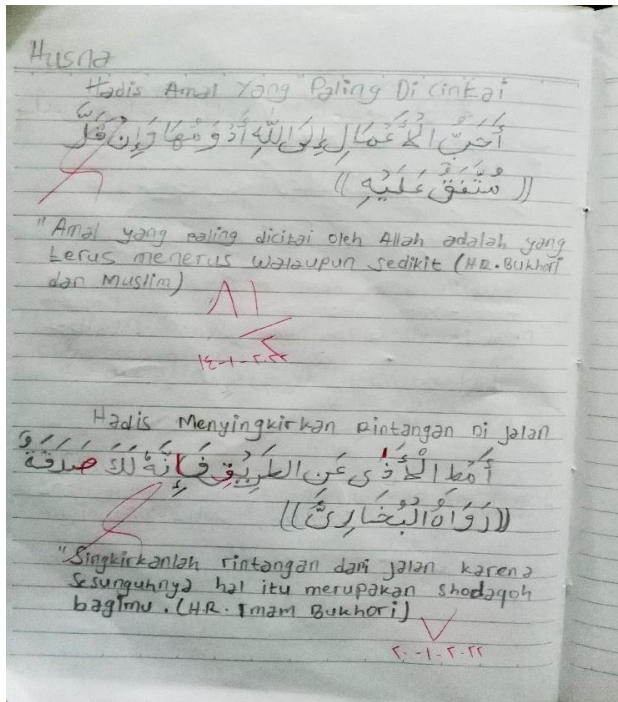 Husna
Hadis Amal Yang Paling Di Cintai
أَحَبُّ الْأَعْمَالِ إِلَى اللَّهِ أَدْوَمُهَا وَإِنْ قَلَّ
(( مُتَّفَقٌ عَلَيْهِ ))
"Amal yang paling dicitai oleh Allah adalah yang
terus menerus walaupun sedikit (HR. Bukhori
dan Muslim)
٨١
١٤-١-٢٠٢٢
Hadis Menyingkirkan Rintangan Di jalan
أَمِطِ الْأَذَى عَنِ الطَّرِيْقِ فَإِنَّهُ لَكَ صَدَقَةٌ
((رَوَاهُ الْبُخَارِيُّ))
"Singkirkanlah rintangan dari jalan karena
sesunguhnya hal itu merupakan shodaqoh
bagimu. (H.R. Imam Bukhori)
٢٠-١-٢٠٢٢